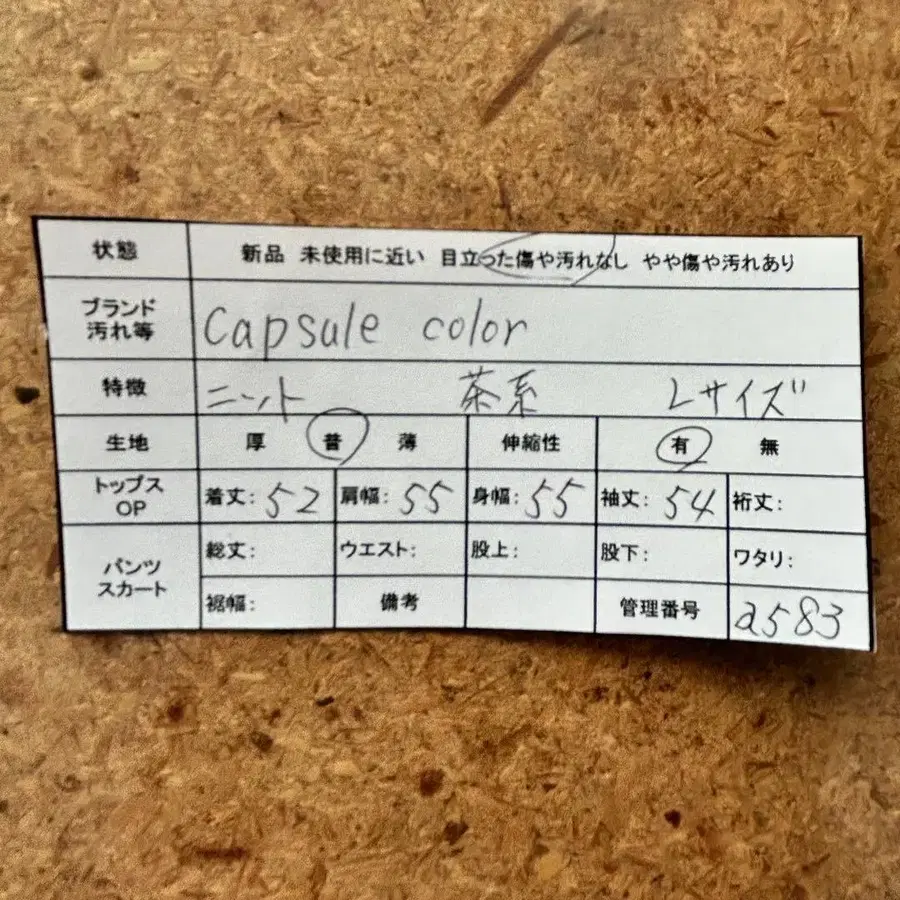 状態 新品 未使用に近い 目立った傷や汚れなし やや傷や汚れあり
ブランド
汚れ等 Capsule color
特徴 ニット 茶系 Lサイズ
生地 厚 普 薄 伸縮性 有 無
トップス
OP 着丈: 52 肩幅: 55 身幅: 55 袖丈: 54 裄丈:
パンツ
スカート 総丈: ウエスト: 股上: 股下: ワタリ:
裾幅: 備考 管理番号 a583